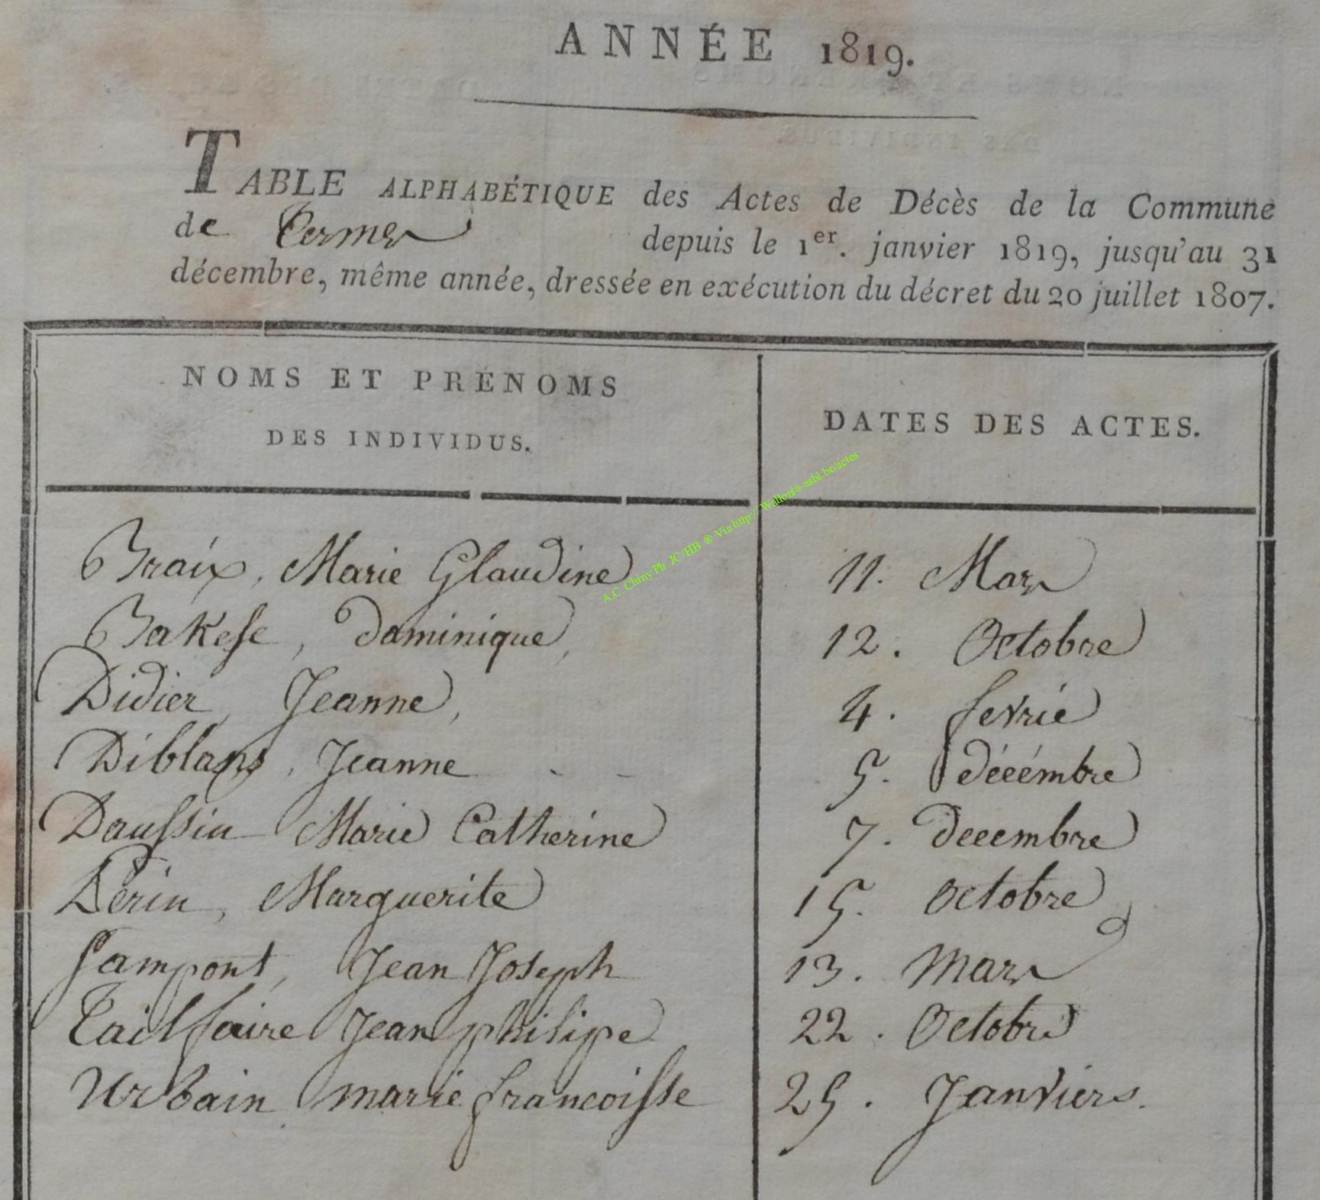 ANNÉE 1819.
TABLE ALPHABÉTIQUE des Actes de Décès de la Commune
de Termes depuis le 1er. janvier 1819, jusqu'au 31
décembre, même année, dressée en exécution du décret du 20 juillet 1807.
NOMS ET PRÉNOMS
DES INDIVIDUS.
DATES DES ACTES.
Braix, Marie Glaudine 11. Mars
Bakese, dominique, 12. Octobre
Didier, Jeanne, 4. fevrié
Diblans, Jeanne - - 5. décémbre
Daussin Marie Catherine 7. decembre
Perin, Marguerite 15. octobre
Jampont, Jean Joseph 13. mars
Tailfaire Jean philipe 22. Octobre
Urbain marie francoisse 25. Janviers.